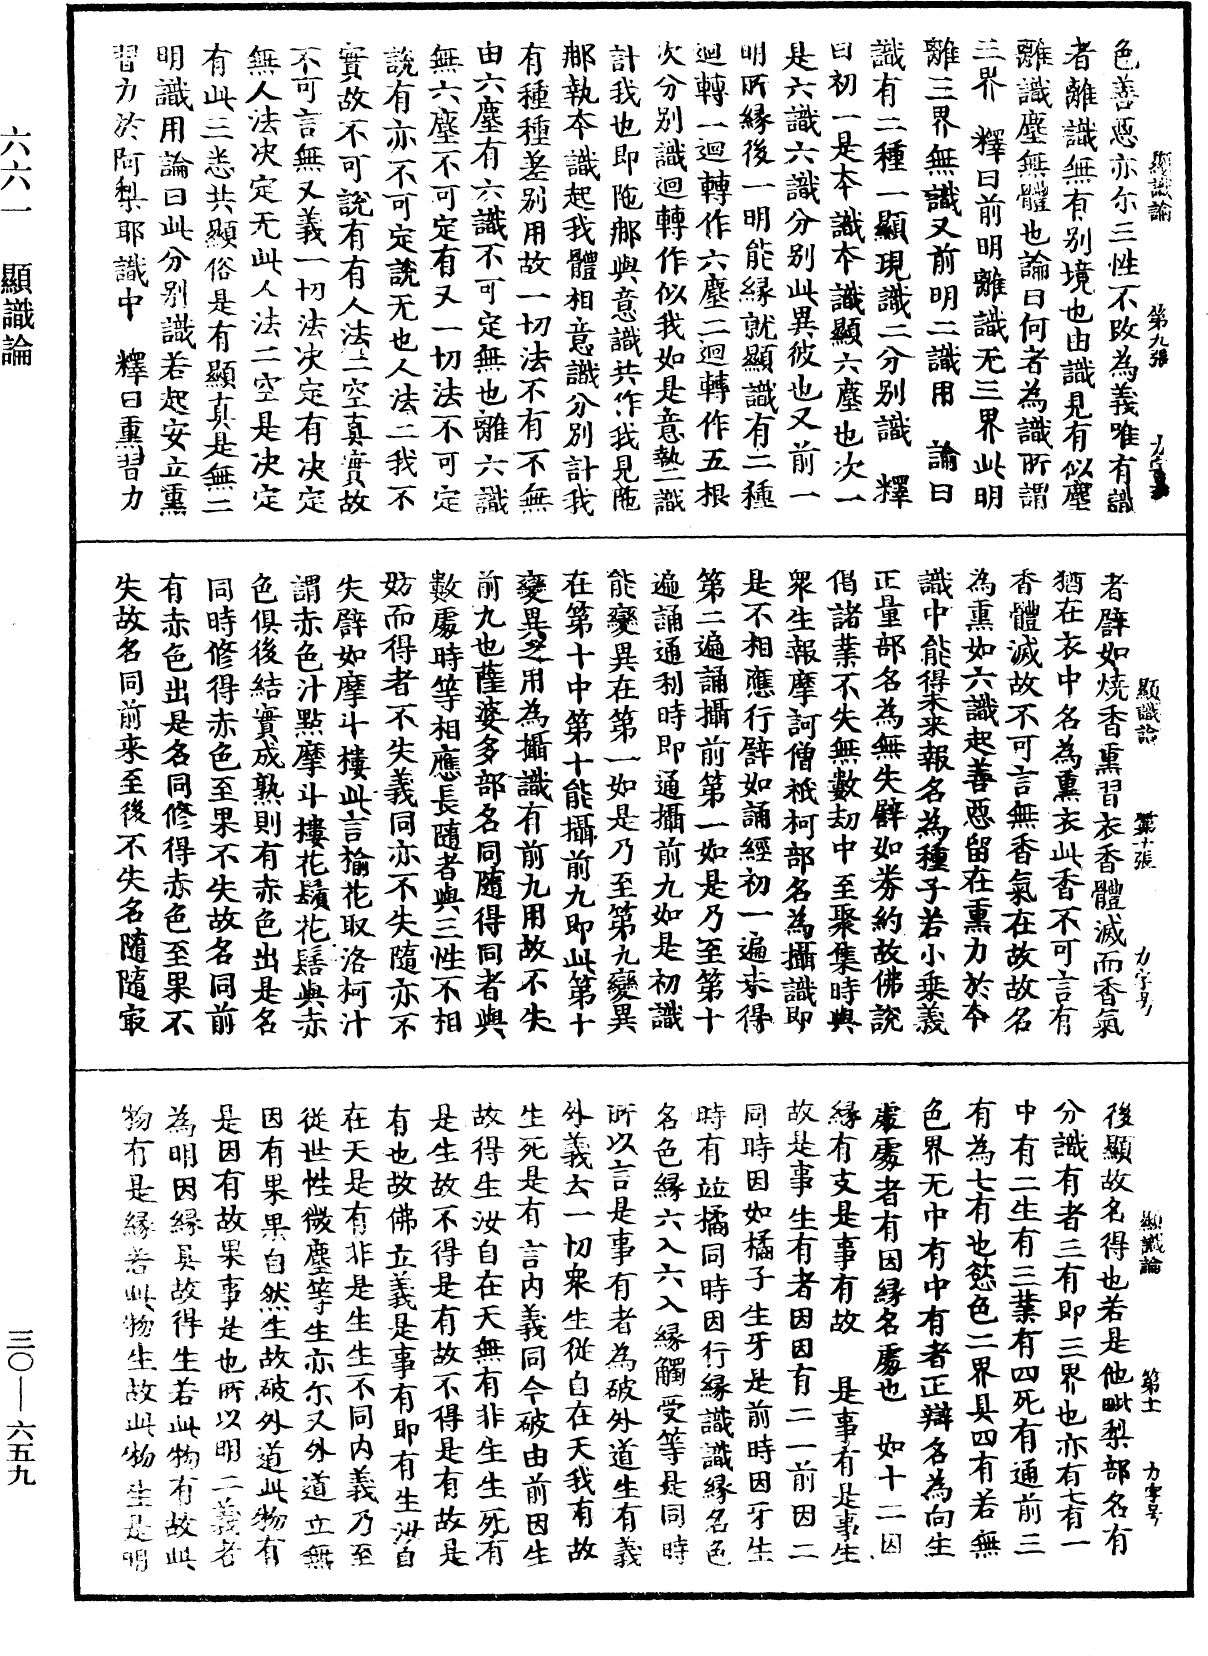 六六一　顯識論
三〇—六五九
顯識論　第九張　力字号
色善惡亦尒三性不改為義唯有識
者離識無有別境也由識見有似塵
離識塵無體也論曰何者為識所謂
三界　釋曰前明離識无三界此明
離三界無識又前明二識用　論曰
識有二種一顯現識二分別識　釋
曰初一是本識本識顯六塵也次一
是六識六識分別此異彼也又前一
明所緣後一明能緣就顯識有二種
迴轉一迴轉作六塵二迴轉作五根
次分別識迴轉作似我如是意執一識
計我也即陁那與意識共作我見陁
那執本識起我體相意識分別計我
有種種差別用故一切法不有不無
由六塵有六識不可定無也離六識
無六塵不可定有又一切法不可定
說有亦不可定說无也人法二我不
實故不可說有有人法二空真實故
不可言無又義一切法決定有決定
無人法決定无此人法二空是決定
有此三悉共顯俗是有顯真是無二
明識用論曰此分別識若起安立熏
習力於阿梨耶識中　釋曰熏習力
顯識論　第十張　力字号
者譬如燒香熏習衣香體滅而香氣
猶在衣中名為熏衣此香不可言有
香體滅故不可言無香氣在故故名
為熏如六識起善惡留在熏力於本
識中能得未來報名為種子若小乘義
正量部名為無失譬如券約故佛說
偈諸業不失無數劫中至聚集時與
衆生報摩訶僧祇柯部名為攝識即
是不相應行譬如誦經初一遍未得
第二遍誦攝前第一如是乃至第十
遍誦通利時即通攝前九如是初識
能變異在第一如是乃至第九變異
在第十中第十能攝前九即此第十
變異之用為攝識有前九用故不失
前九也薩婆多部名同隨得同者與
數處時等相應長隨者與三性不相
妨而得者不失義同亦不失隨亦不
失譬如摩斗樓此言榆花取洛柯汁
謂赤色汁點摩斗樓花鬚花鬚與赤
色俱後結實成熟則有赤色出是名
同時修得赤色至果不失故名同前
有赤色出是名同修得赤色至果不
失故名同前來至後不失名隨隨㝡
顯識論　第十一　力字号
後顯故名得也若是他毗梨部名有
分識有者三有即三界也亦有七有一
中有二生有三業有四死有通前三
有為七有也慾色二界具四有若無
色界无中有中有者正辯名為向生
處處者有因緣名處也　如十二因
緣有支是事有故　是事有是事生
故是事生有者因因有二一前因二
同時因如橘子生牙是前時因牙生
時有並橘同時因行緣識識緣名色
名色緣六入六入緣觸受等是同時
所以言是事有者為破外道生有義
外義云一切衆生從自在天我有故
生死是有　言內義同今破由前因生
故得生汝自在天無有非生生死有
是生故不得是有故不得是有故是
有也故佛立義是事有即有生汝自
在天是有非是生生不同內義乃至
從世性微塵等生亦尒又外道立無
因有果果自然生故破外道此物有
是因有故果事是也所以明二義者
為明因緣具故得生若此物有故此
物有是緣若此物生故此物生是明